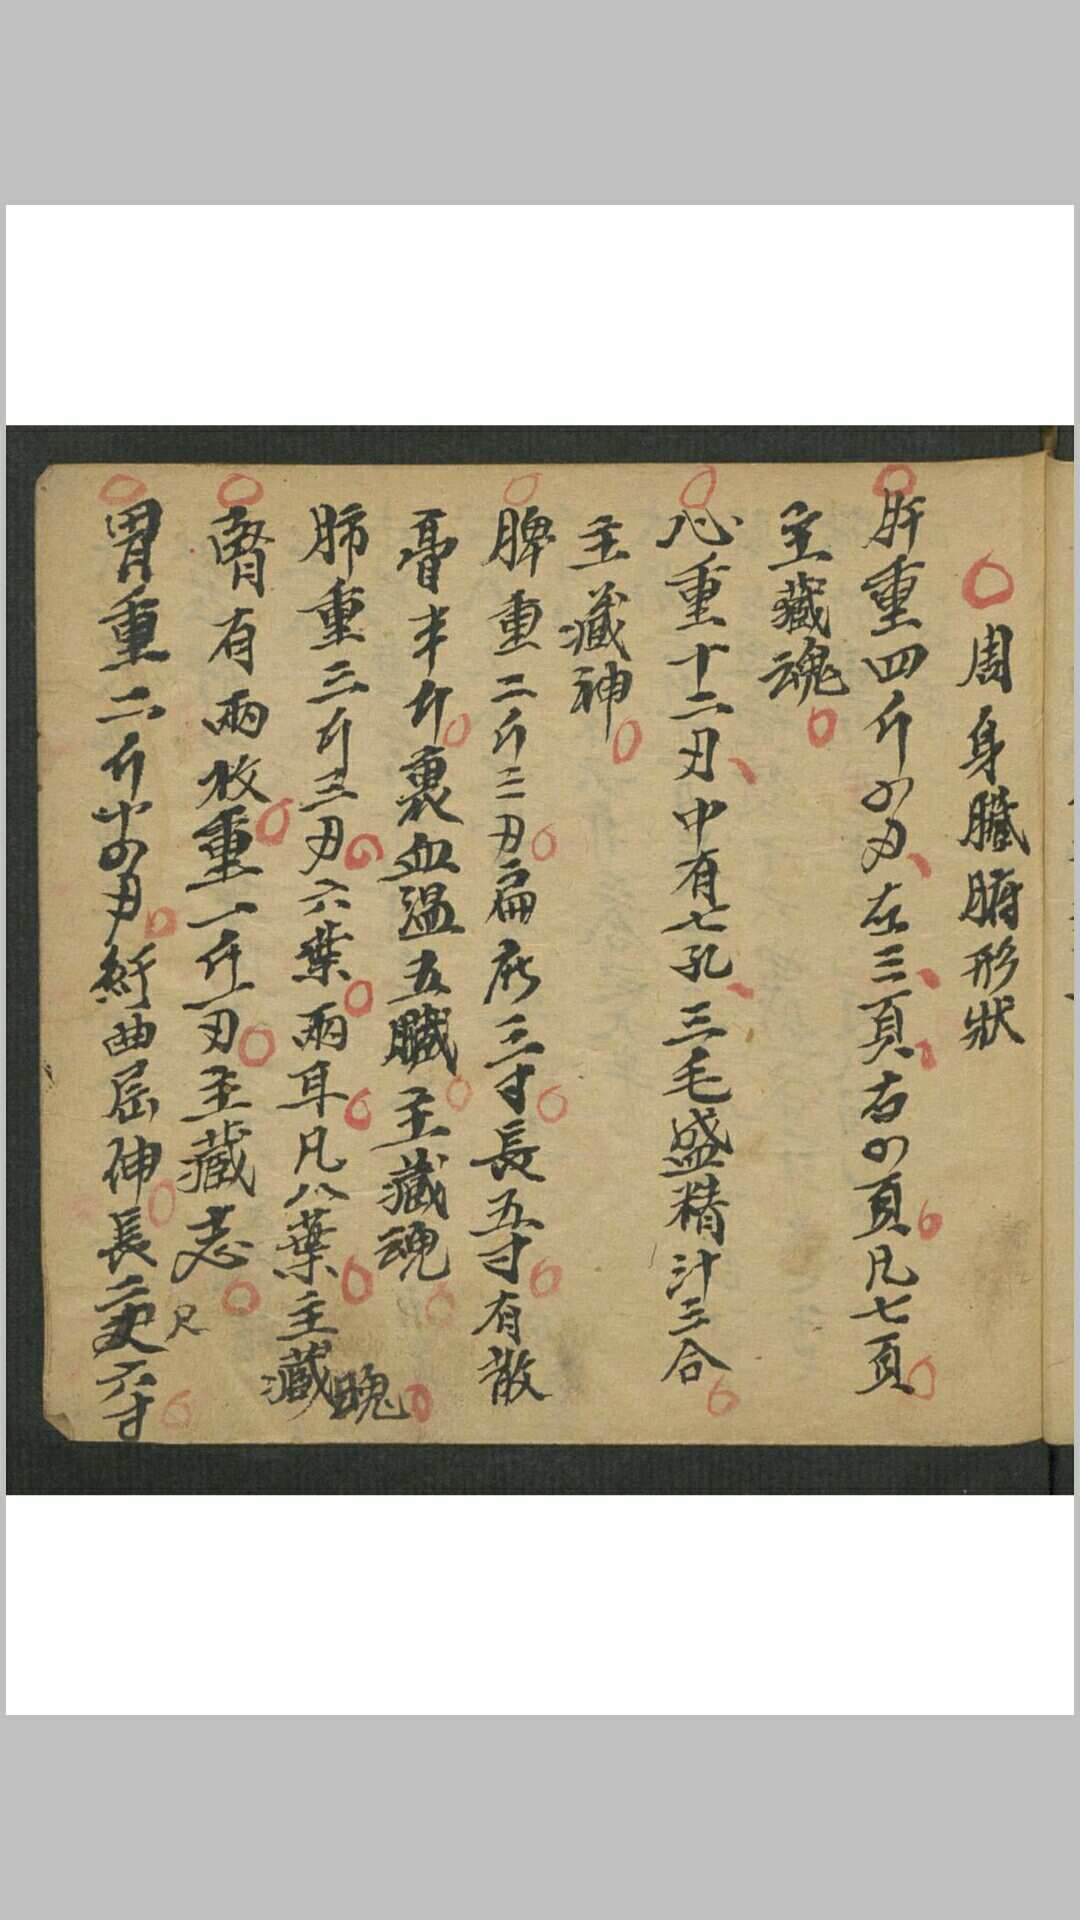 周身臟腑形狀
肝重四斤四刃左三頁右四頁凡七頁
主藏魂
心重十二刃中有七孔三毛盛精汁三合
主藏神
脾重二斤三刃扁廣三寸長五寸有散
膏半斤裹血溫五臟主藏魂
肺重三斤三刃六葉兩耳凡八葉主藏魄
腎有兩枚重一斤一刃主藏志
胃重二斤十四刃紆曲屈伸長二尺六寸